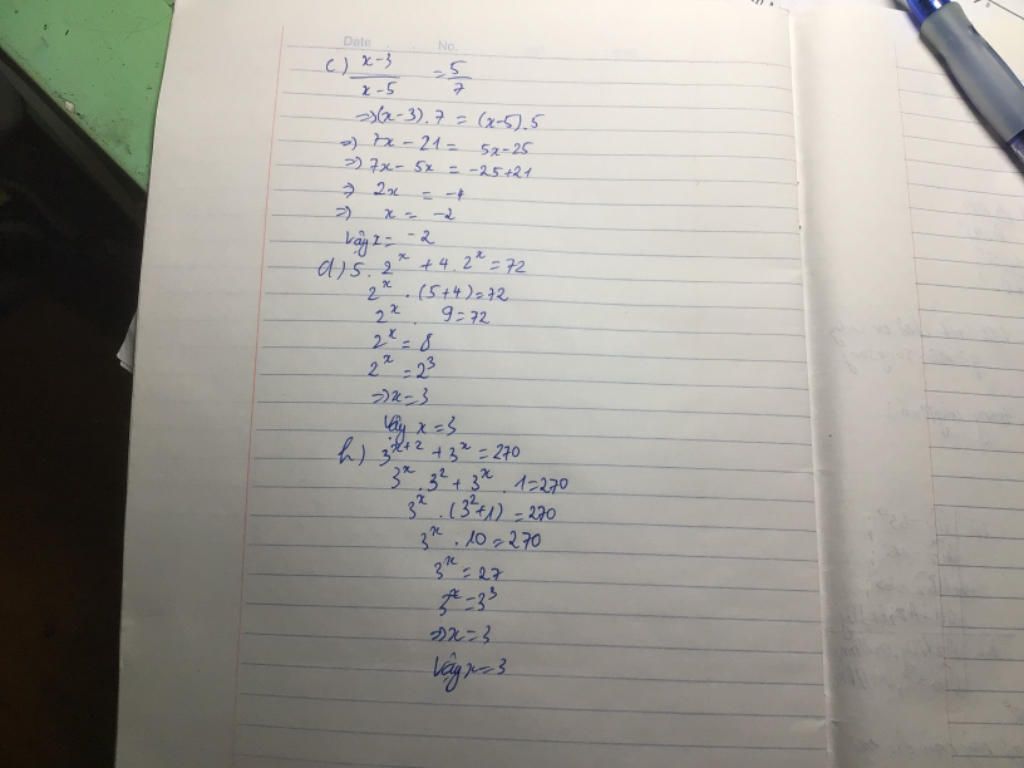 Date . . No.
c) \frac{x-3}{x-5} = \frac{5}{7}
=>(x-3).7 = (x-5).5
=> 7x - 21 = 5x-25
=> 7x - 5x = -25+21
=> 2x = -4
=> x = -2
Vậy x = -2
d) 5. 2^x + 4. 2^x = 72
2^x . (5+4) = 72
2^x . 9 = 72
2^x = 8
2^x = 2^3
=> x = 3
Vậy x = 3
h) 3^{x+2} + 3^x = 270
3^x . 3^2 + 3^x . 1 = 270
3^x . (3^2+1) = 270
3^x . 10 = 270
3^x = 27
3^x = 3^3
=> x = 3
Vậy x = 3